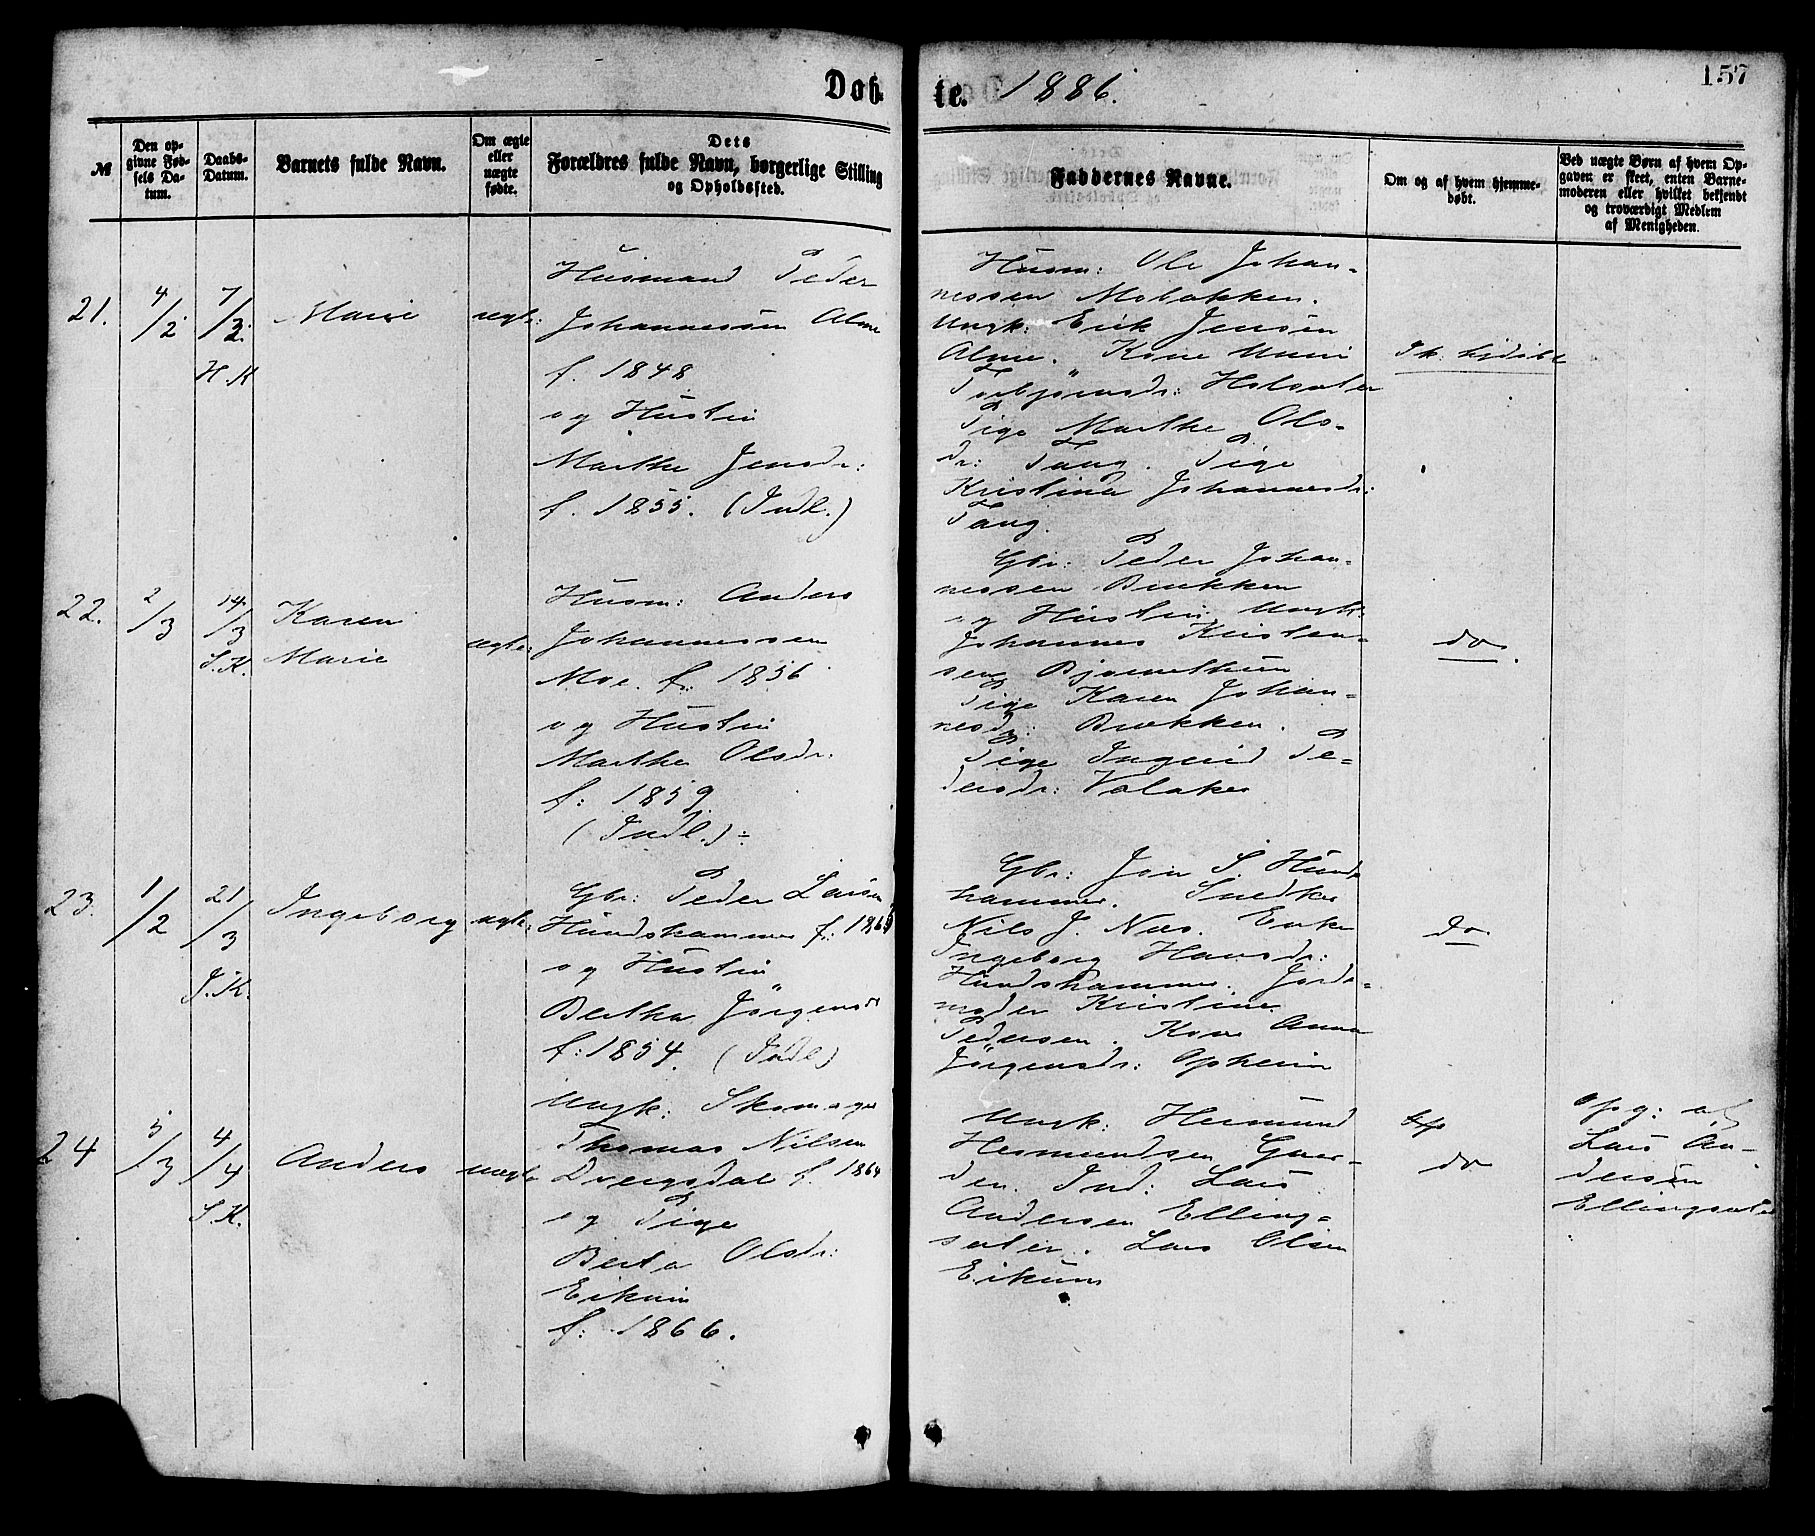 Døb
te. 1886.
157
№
Den op-
givne Fød-
sels Da-
tum.
Daabs-
Datum.
Barnets fulde Navn.
Om ægte
eller
uægte
fødte.
Dets
Forældres fulde Navn, borgerlige Stilling
og Opholdssted.
Faddernes Navne.
Om og af hvem hjemme-
døbt.
Ved uægte Børn af hvem Op-
gaven er skeet, enten Barne-
moderen eller hvilket bekjendt
og troværdigt Medlem
af Menigheden.
21.
4/2
7/3.
H.K
Marie
ægte:
Husmand Peder
Johannesen Alme
f. 1848
og Hustru
Marthe Jensdr:
f. 1855. (Indl.)
Husm: Ole Johan-
nessen Mobakken.
Ungk: Erik Jensen
Alme. Kone Unni
Torbjørnsdr:
Pige Marthe Ols-
dr: Tang. Pige
Kristina Johannesdr:
Tang.
22.
2/3
14/3
S.K.
Karen
Marie
ægte:
Husm: Anders
Johannessen
Moe. f. 1856
og Hustru
Marthe Olsdr.
f: 1859.
(Indl.):
Gbr: Peder Johan-
nessen Brækken
og Hustru. Ungk:
Johannes Kristen-
sen
Pige Karen Johan-
nesdr: Brækken.
Pige Ingrid Pe-
dersdr: Valaker
do.
23.
1/2
21/3
S.K.
Ingeborg
ægte:
Gbr: Peder Larsen
Hundshammer f.
og Hustru
Bertha Jørgensdr
f: 1854. (Indl.)
Gbr: Jon S. Hunds
hammer. Snedker
Nils J. Næs. Enke
Ingeborg Hansdr:
Hundshammer. Jorde-
moder Kristine
Pedersen. Kone Anna
Jørgensdr: Opheim
do.
24
5/3
4/4
S.K.
Anders
uægte
Ungk: Skomager
Thomas Nilsen
Dregsdal f. 1864
og Pige
Berta Olsdr:
Eikum
f: 1866.
Ungk: Hermund
Hermundsen Gaar-
den. Ind: Lars
Andersen Elling-
sæter. Lars Olsen
Eikum
do
Opg: af
Lars An-
dersen
Ellingsæter